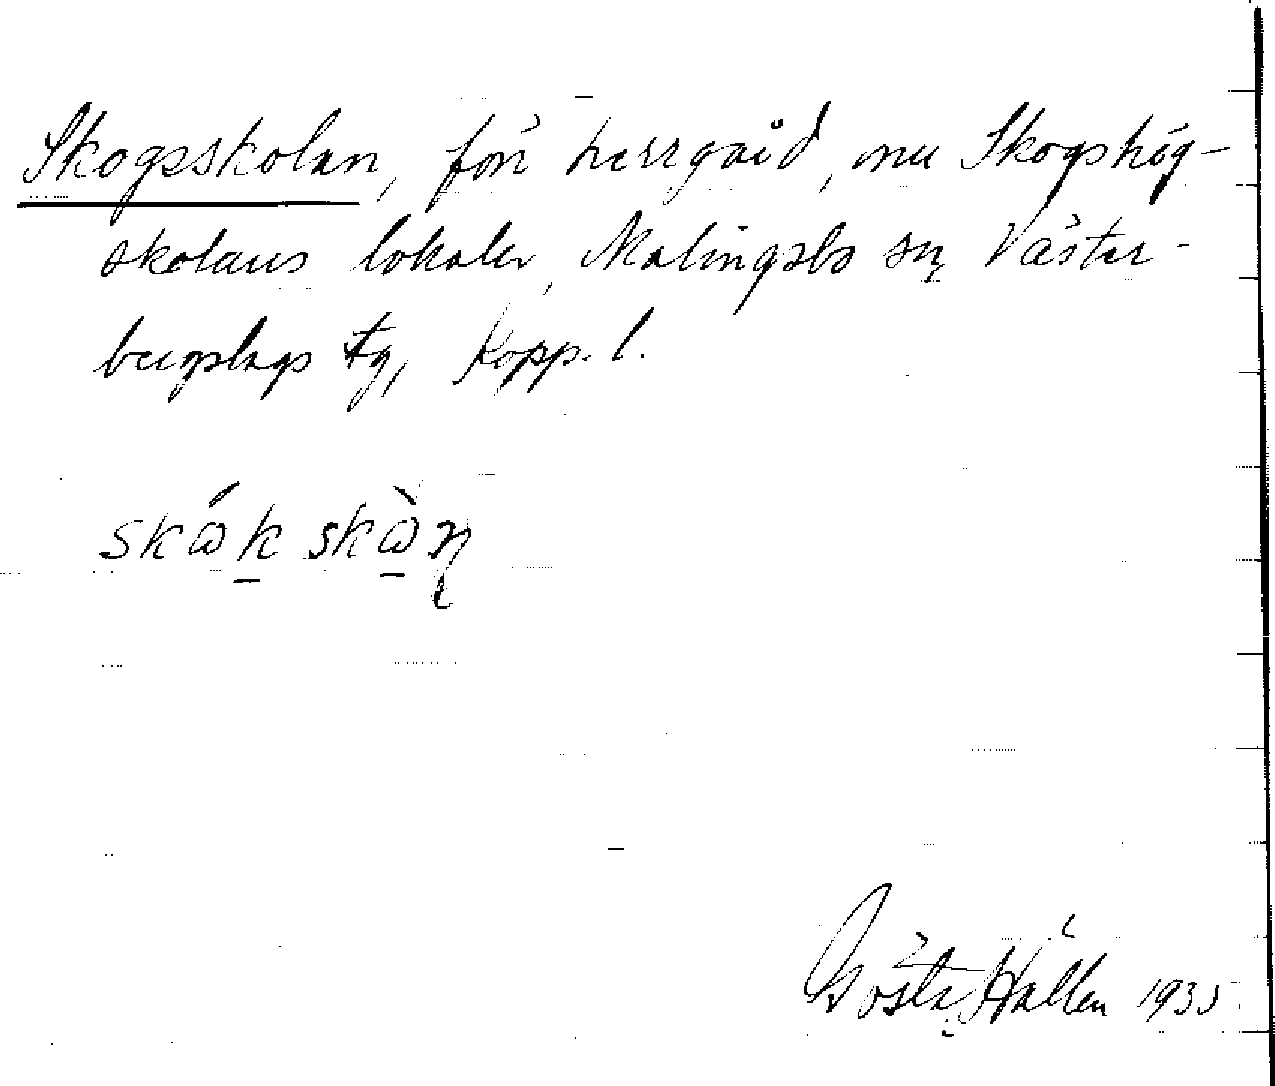 Skogsskolan, förr herrgård, nu Skogshög-
skolans lokaler, Malingsbo sn, Väster-
bergslags tg, Kopp. l.
skǻk skὼn
Gösta Hållén 1935.